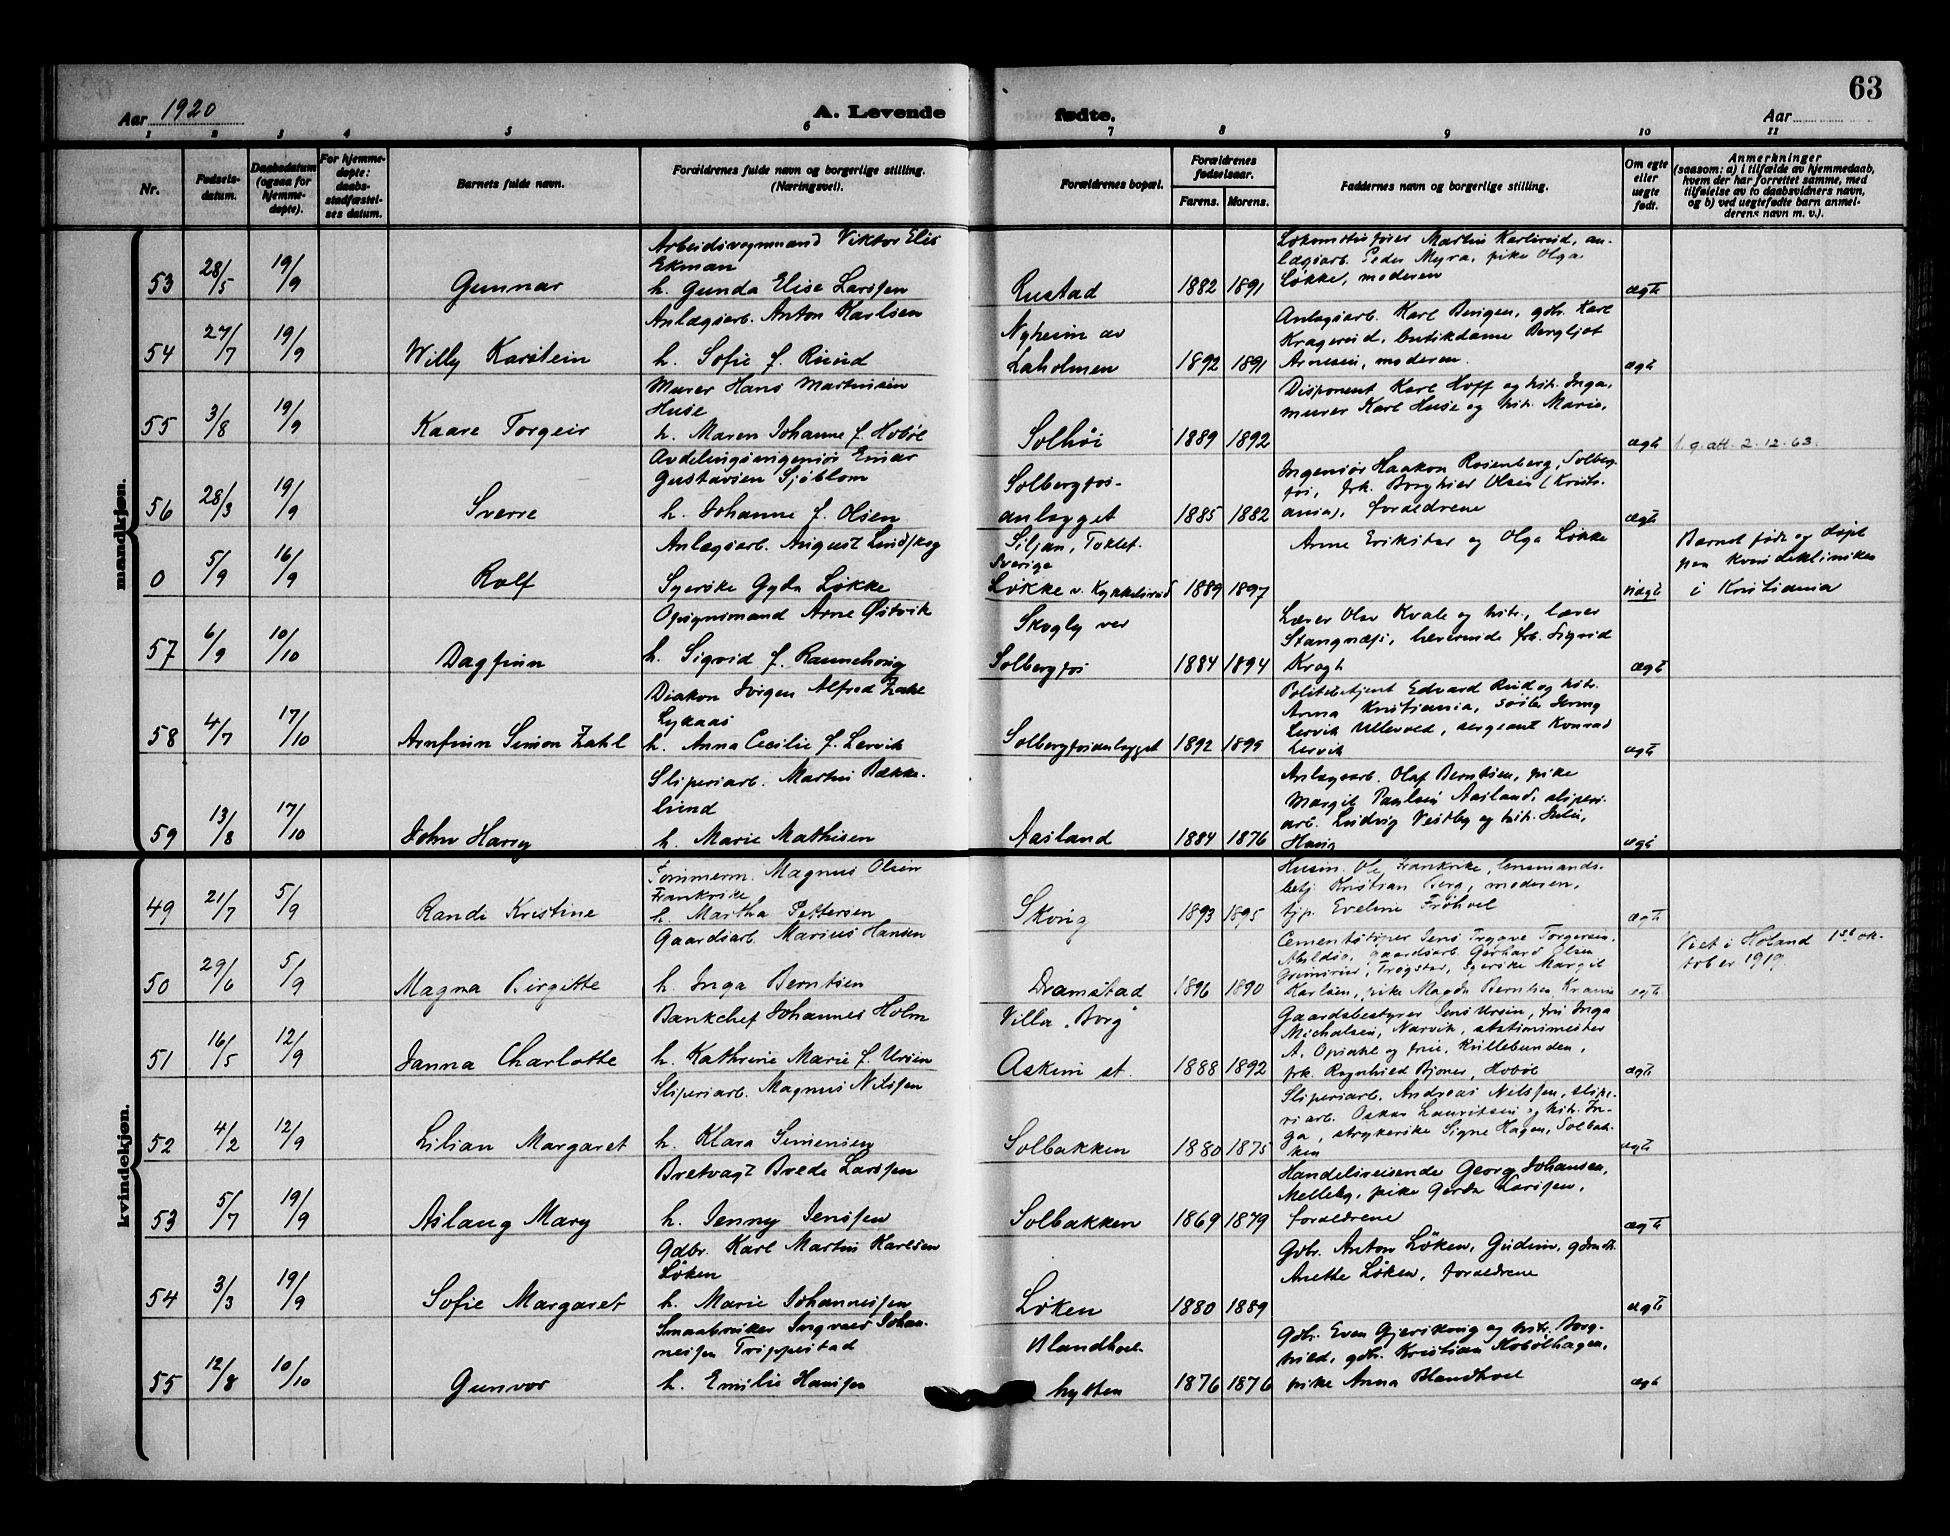 63
Aar 1920
A. Levende
fødte.
Aar
1 2 3 4 5 6 7 8 9 10 11
Nr.
Fødsels-
datum.
Daabsdatum
(ogsaa for
hjemme-
døpte).
For hjemme-
døpte:
daabs-
stadfæstel-
ses datum.
Barnets fulde navn.
Forældrenes fulde navn og borgerlige stilling.
(Næringsvei).
Forældrenes bopæl.
Forældrenes
fødselsaar.
Farens. Morens.
Faddernes navn og borgerlige stilling.
Om egte
eller
uegte
født.
Anmerkninger
(saasom: a) i tilfælde av hjemmedaab,
hvem der har forrettet samme, med
tilføielse av to daabsvidners navn,
og b) ved uegtefødte barn anmel-
derens navn m. v.).
mandkjøn.
53 28/5 19/9 Gunnar
Arbeidsvognmand Viktor Elis
Ekman
h. Gunda Elise Larssen
Rustad 1882 1891
Lokomotivfører Martin Karlsrud, an-
lægsarb. Peder Myra, pike Olga
Løkke, moderen
ægte
54 27/7 19/9 Willy Karstein
Anlægsarb. Anton Karlsen
h. Sofie f. Ruud
Nyheim av
Laholmen 1892 1891
Anlægsarb. Karl Bergen, gbr. Karl
Kragerud, butikdame Bergljot
Arnesen, moderen.
ægte
55 3/8 19/9 Kaare Torgeir
Murer Hans Martinsen
Huse
h. Maren Johanne f. Hobøl
Solhøi 1889 1892
Disponent Karl Hoff og hstr. Inga,
murer Karl Huse og hstr. Marie.
ægte
f. g. att. 2.12.63.
56 28/3 19/9 Sverre
Avdelingsingeniør Einar
Gustavsen Sjöblom
h. Johanne f. Olsen
Solbergfos-
anlægget 1885 1882
Ingeniør Haakon Rosenberg, Solberg-
fos, frk. Borghild Olsen (Kristi-
ania), forældrene
ægte
0 5/9 16/9 Rolf
Anlægsarb. August Lindskog
Syerske Gyda Løkke
Siljan, Toklef.
Sverige
Løkke v. Kykkelsrud 1889 1897
Arne Erikstad og Olga Løkke
uægte
Barnet født og døpt
paa Kvindeklinikken
i Kristiania
57 6/9 10/10 Dagfinn
Opsynsmand Arne Østvik
h. Sigrid f. Rannehaug
Skogly ved
Solbergfos 1884 1894
Lærer Olav Kvale og hstr., lærer
Stangnæss, lærerinde frk. Sigrid
Kragh
ægte
58 4/7 17/10 Arnfinn Simon Zahl
Diakon Jørgen Alfred Zahl
Lykaas
h. Anna Cecilie f. Lervik
Solbergfosanlægget 1892 1899
Politibetjent Edvard Rud og hstr.
Anna Kristiania, søster Jenny
Lervik Ullevold, sergeant Konrad
Lervik
ægte
59 13/8 17/10 John Harry
Sliperiarb. Martin Bække-
lund
h. Marie Mathisen
Aasland 1884 1876
Anlægsarb. Olaf Berntsen, pike
Margit Paulsen Aasland, sliperi-
arb. Ludvig Vestby og hstr. Julie,
Haug
ægte
kvindekjøn.
49 21/7 5/9 Randi Kristine
Tømmerm. Magnus Olsen
Frankrike
h. Martha Pettersen
Skaug 1893 1895
Husm. Ole Frankrike, lensmands-
betj. Kristian Berg, moderen,
tjp. Eveline Frøhvel
ægte
50 29/6 5/9 Magna Birgitte
Gaardsarb. Marius Hansen
h. Inga Berntsen
Dramstad 1896 1890
Cementstøper Jens Trygve Torgersen,
Abildsø, gaardsarb. Gerhard Olsen
Grimsrud, Trøgstad, syerske Margit
Karlsen, pike Magda Berntsen Krania
ægte
Viet i Høland 1st ok-
tober 1919
51 16/5 12/9 Janna Charlotte
Bankchef Johannes Holm
h. Kathrine Marie f. Ursin
Villa "Borg"
Askim st. 1888 1892
Gaardsbestyrer Jens Ursin, fru Inga
Michalsen, Narvik, stationsmester
A. Opsahl og frue, Kullebunden,
frk. Ragnhild Bjoner, Hobøl
ægte
52 4/2 12/9 Lilian Margaret
Sliperiarb. Magnus Nilssen
h. Klara Simensen
Solbakken 1880 1875
Sliperiarb. Andreas Nilssen, slipe-
riarb. Oskar Lauritsen og hstr. In-
ga, strykerske Signe Hagen, Solbak-
ken
ægte
53 5/7 19/9 Aslaug Mary
Bretvagt Brede Larssen
h. Jenny Jenssen
Solbakken 1869 1879
Handelsreisende Georg Johansen,
Melleby, pike Gerda Larssen,
forældrene
ægte
54 3/3 19/9 Sofie Margaret
Gdbr. Karl Martin Karlsen
Løken
h. Marie Johannessen
Løken 1880 1889
Gbr. Anton Løken, Gudim, gdmdtr.
Anette Løken, forældrene
ægte
55 12/8 10/10 Gunvor
Smaabruker Ingvald Johan-
nessen Trippestad
h. Emilie Hanssen
Blandhol-
hytten 1876 1876
Gdbr. Even Gjerskaug og hstr. Borg-
hild, gdbr. Kristian Kobølhagen,
pike Anna Blandhol
ægte